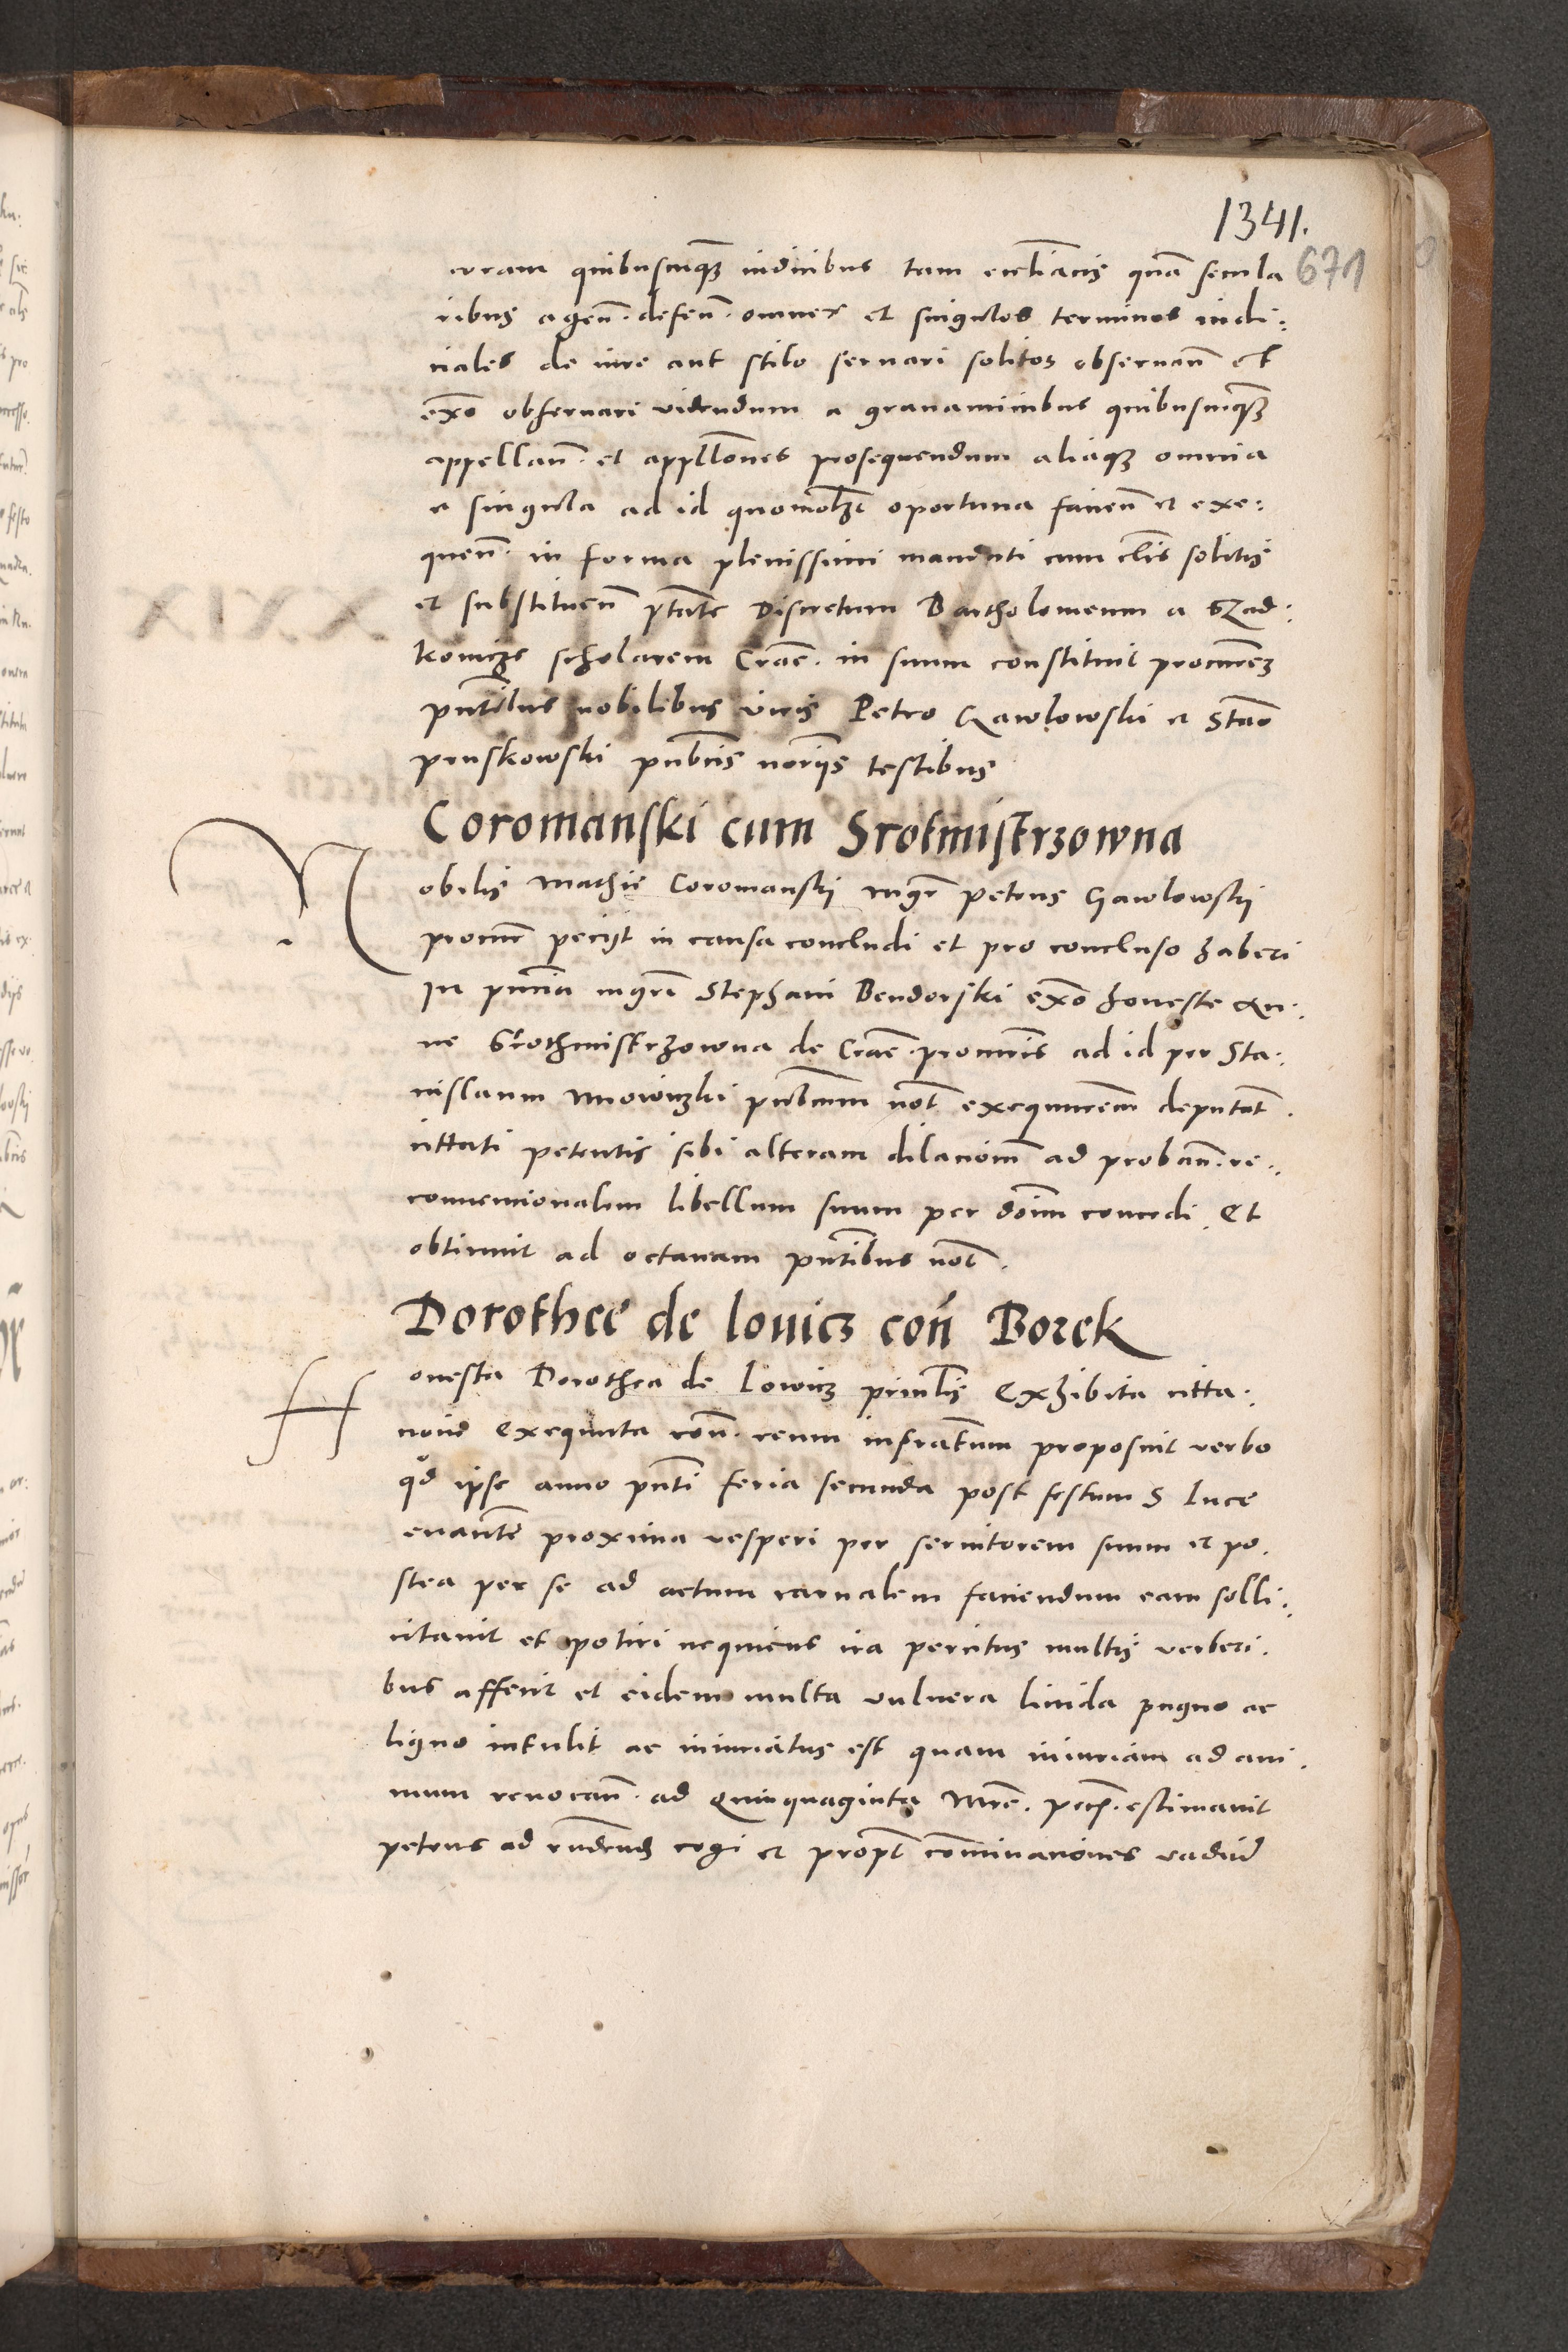 1341.
671
coram quibuscūqꝫ iudicibus tam eccliācis quā secula
ribus agen̄. defen̄. omnes et singulos terminos iudi:
ciales de iure aut stilo seruari solitos obseruan̄ et
exo obseruari videndum a grauaminibus quibuscūqꝫ
appellan̄. et appllōnes prosequendum aliaqꝫ omnia
et singula ad id quomolꝫt oportuna facien̄ et exe:
quen̄. in forma plenissimi mandati cum clis solitis
et substituen̄ ptāte Discretum Bartholomeum a Szad:
kowicze scholarem Crāe. in suum constituit procurēꝫ
pntibus nobilibus viris Petro Gawlowski et Stāo
pruskowski publicis norijs testibus
Coromanski cum Srotmistrzowna
Nobilis Mathie Coromanskj mgr̄ petrus Gawlowskj
procur̄ pecijt in causa concludi et pro concluso haberi
In pn̄cia mgri Stephani Bendorski exo honeste An:
ne Srothmistrzowna de Crāe. procuris ad id per Sta:
nislaum Mrowinzki publicum not̄ exequutorem deputat.
cittati petentis sibi alteram dilacionē ad proban̄. re:
conuencionalem libellum suum per doīm concedi. Et
obtinuit ad octauam pn̄tibus not̄.
Dorothee de louicz con̄ Borek
Honesta Dorothea de Lowicz princlis Exhibita citta:
cione exequuta con̄. reum infrātum proposuit verbo
qd ipse anno pn̄ti feria secunda post festum S Luce
euan̄te proxima vesperi per seruitorem suum et po:
stea per se ad actum carnalem faciendum eam solli:
citauit et potiri nequiens ira percitus multis verberi:
bus affecit et eidem multa vulnera liuida pugno ac
ligno intulit ac iniuriatus est quam iniuriam ad ani:
mum reuocan̄. ad Quinquaginta Mrc̄. pecʒ. estimauit
petens ad cogi et propt̄ comminaciones vadiū